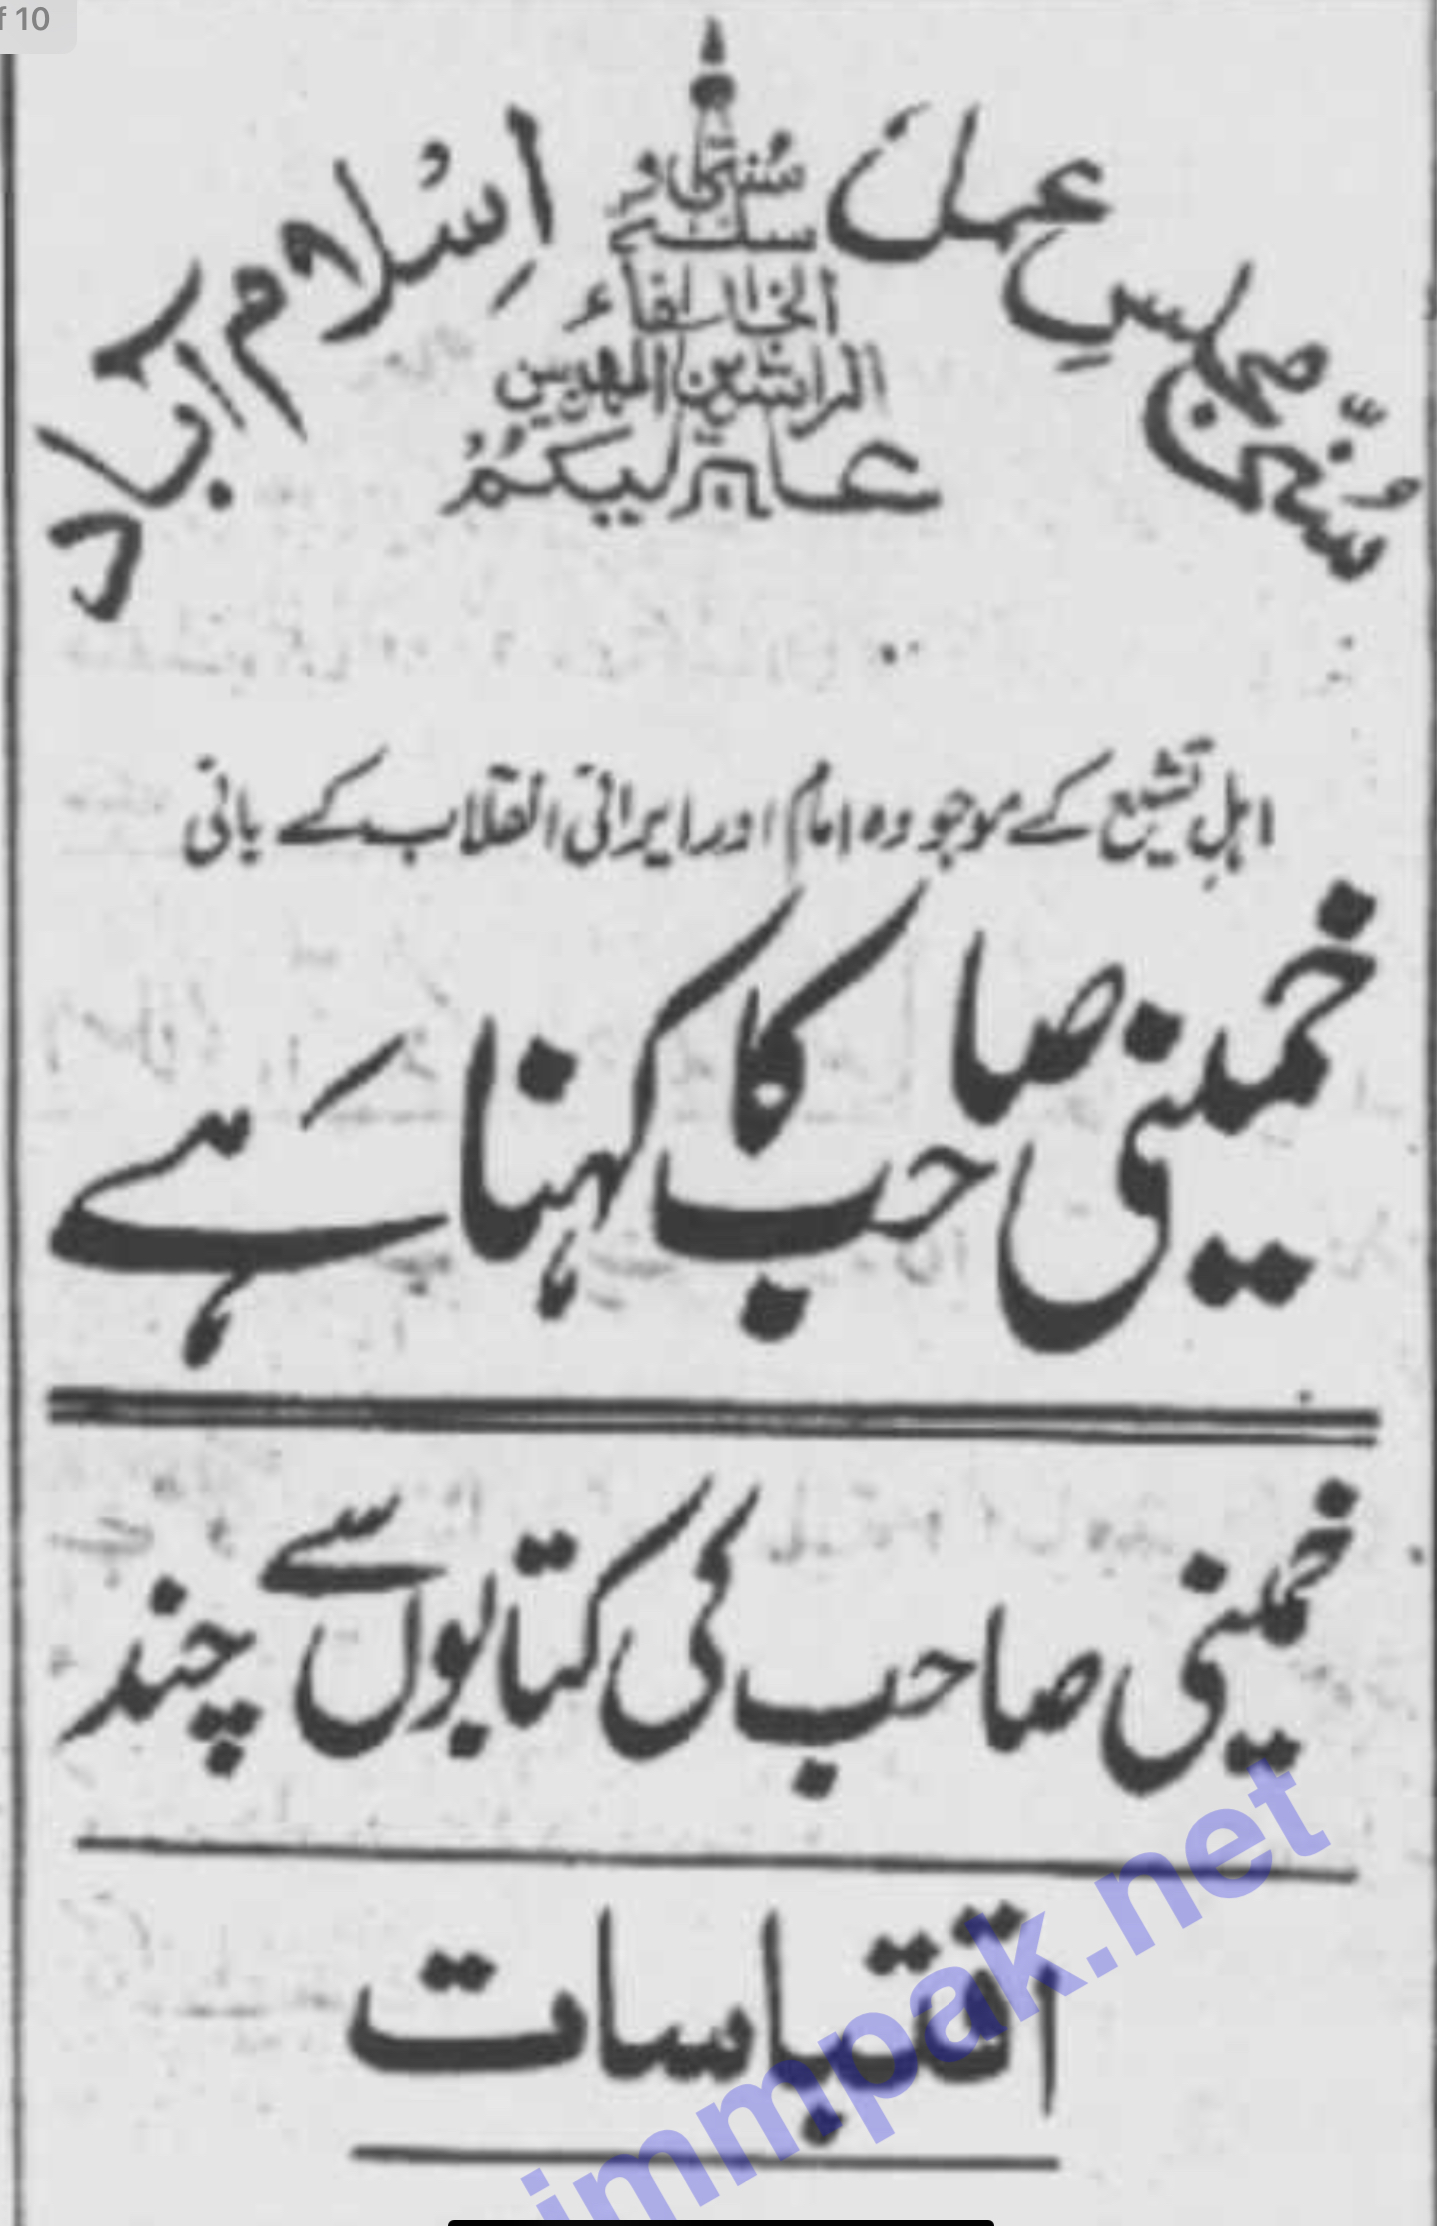 f 10
سُنّی مجلسِ عمل اِسلام آباد
عليكم بسنتی و سنة الخلفاء الراشدين المهديين
اہلِ تشیع کے موجودہ امام اور ایرانی انقلاب کے بانی
خمینی صاحب کا کہنا ہے
خمینی صاحب کی کتابوں سے چند
اقتباسات
immpak.net